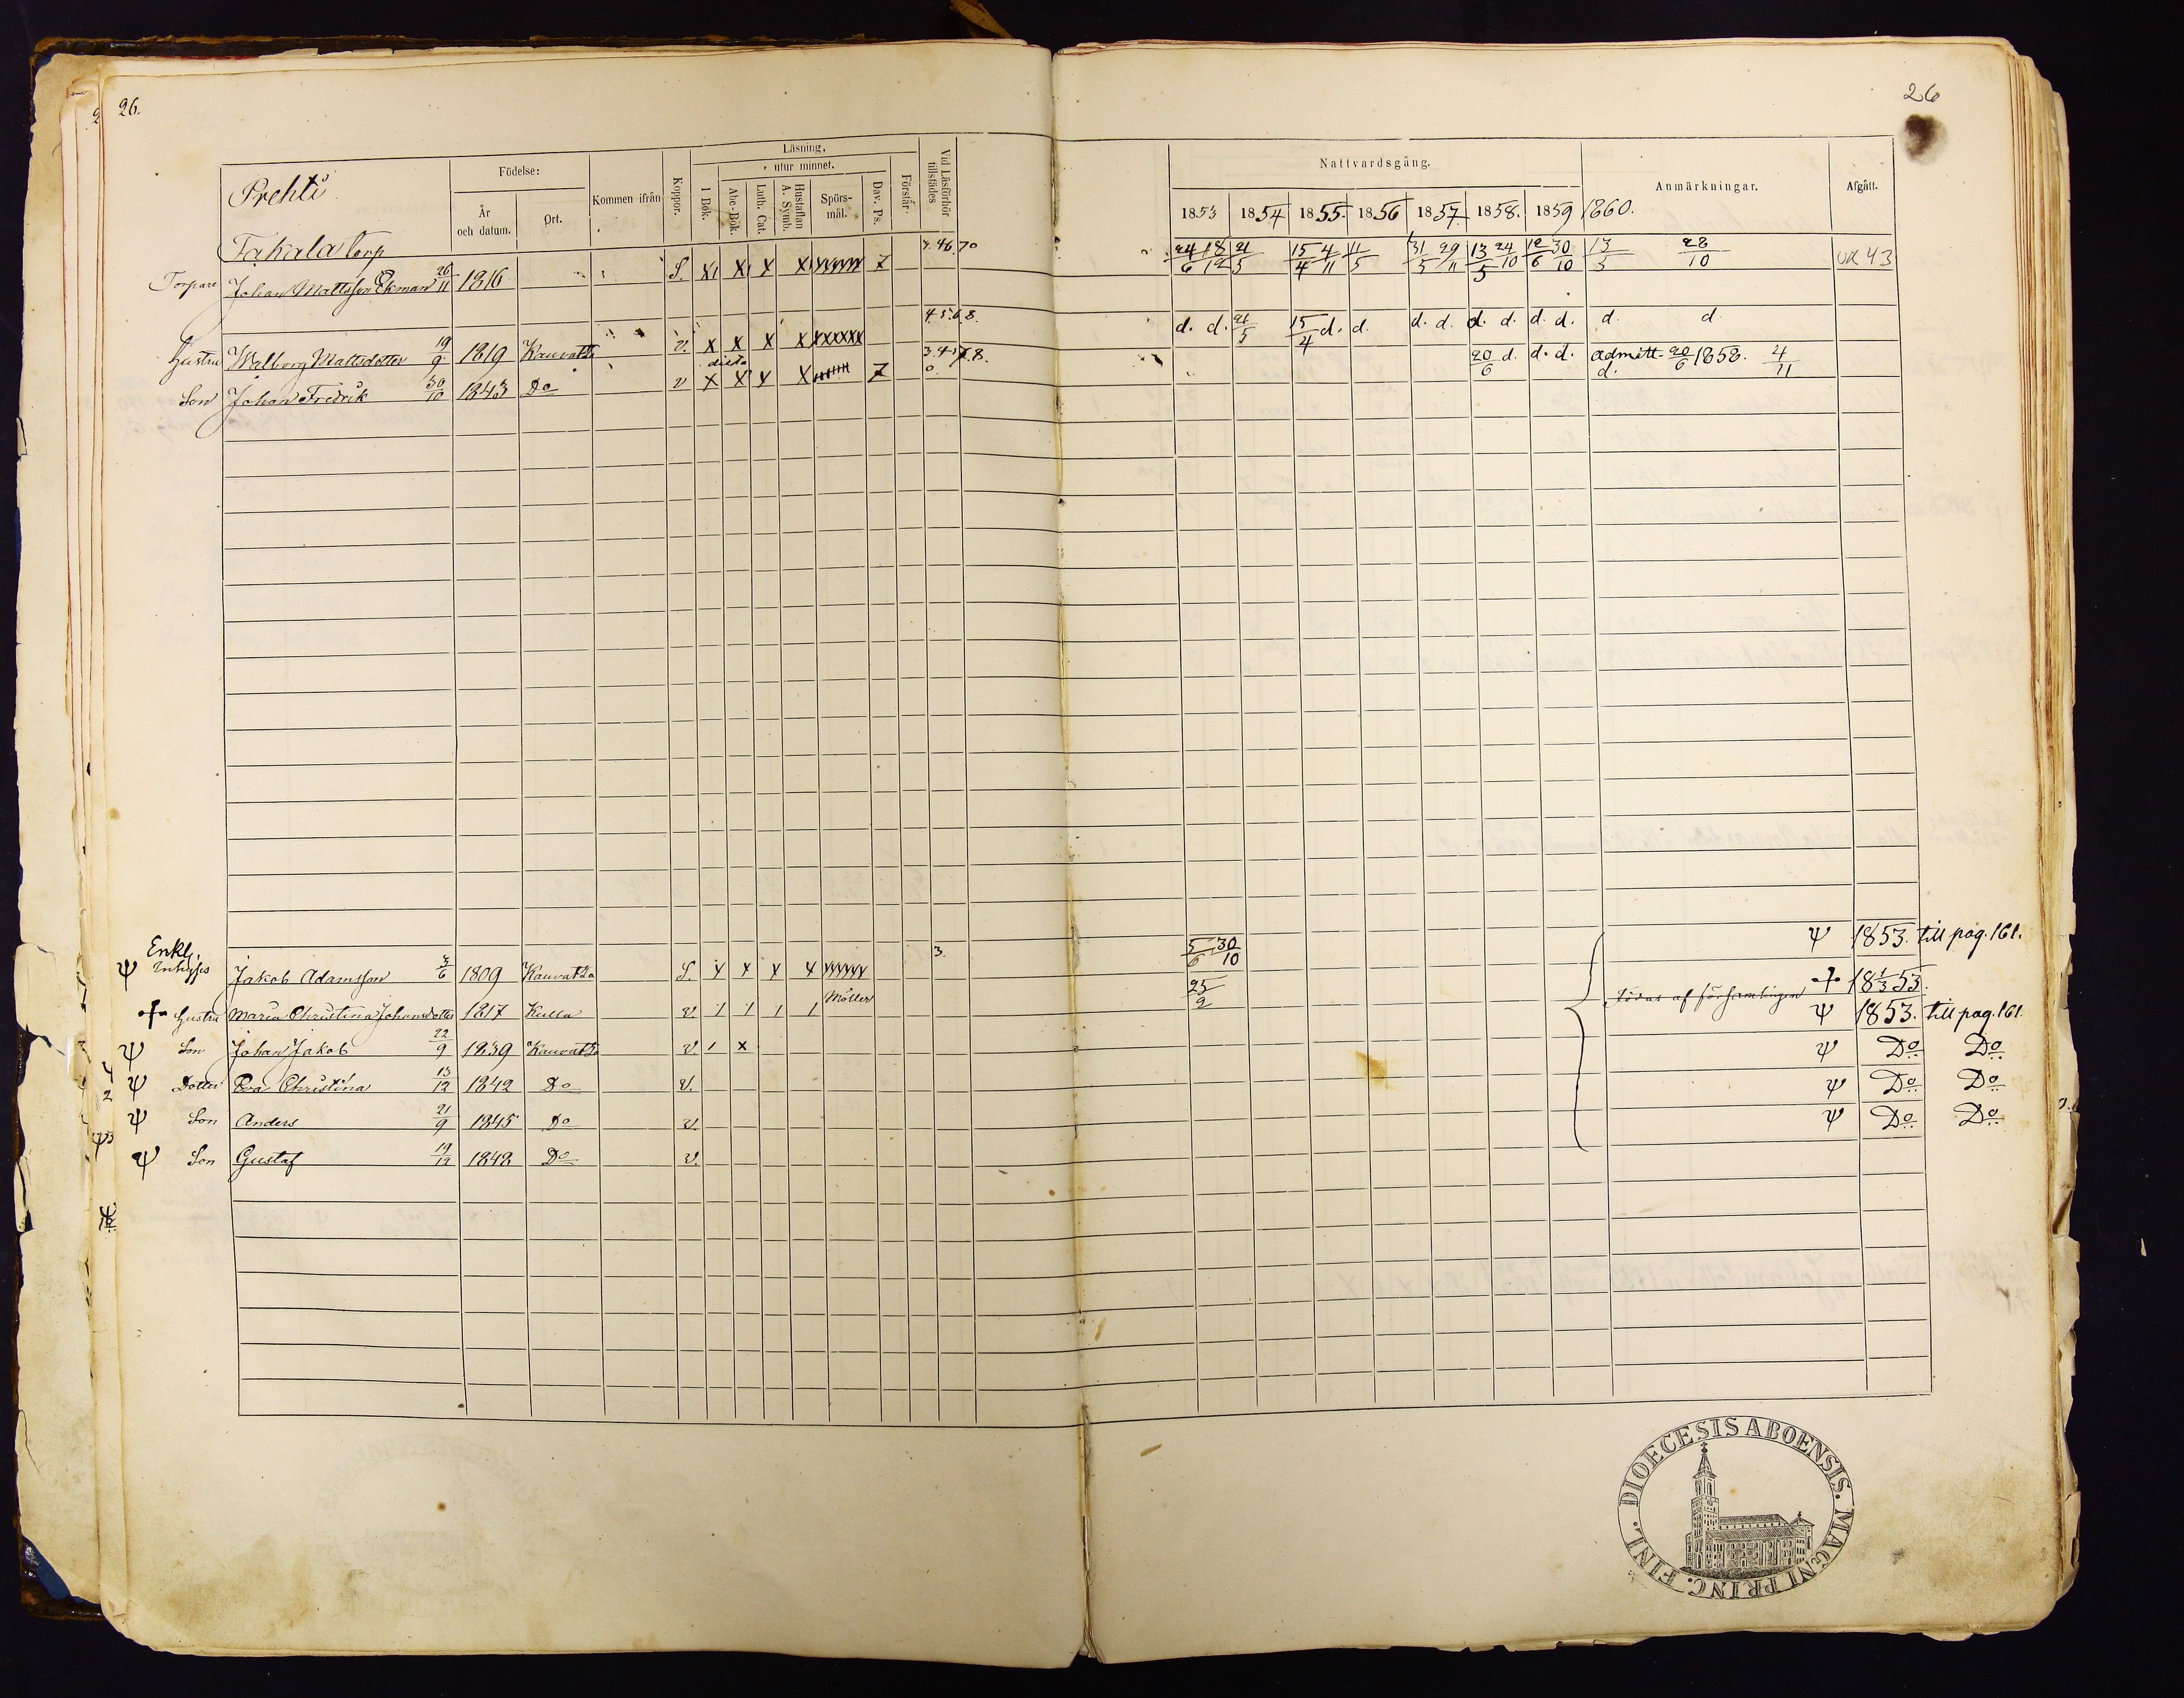 26.
26
Prehti
Födelse:
År och datum.
Ort.
Kommen ifrån
Koppor.
Läsning,
utur minnet.
I Bok.
Abc-Bok.
Luth. Cat.
Hustaflan A. Symb.
Spörs-mål.
Dav. Ps.
Förstår.
Vid Läsförhör tillstädes
Nattvardsgång.
1853 1854 1855. 1856 1857. 1858. 1859 1860.
Anmärkningar.
Afgått.
Tahala torp
Torpare Johan Mattsson Ekman 26/11 1816 S. X X X X xxxxxx 7 3. 46. 70 24/6 18/12 21/5 15/4 4/11 11/5 31/5 29/11 13/5 24/10 12/6 30/10 13/5 28/10 UK 43
Hustru Walborg Mattsdotter 19/9 1819 Kauvatsa v. X X X X xxxxxx 4 5. 6. 8. d. d. 21/5 15/4 d. d. d. d. d. d. d. d. d. d
Son Johan Fredrik 30/10 1843 Do v X X X X 7 3. 4. 5. 7. 8. 0. 20/6 d. d. d. admitt. 20/6 1858. 4/11 d.
Enkl.
Ψ Inhyses Jakob Adamsson 3/6 1809 Kauvatsa S. x x x x xxxxxx 3. 5/6 30/10 Ψ 1853. till pag. 161.
† Hustru Maria Christina Johansdotter 1817 Kulla v. 1 1 1 1 Möller 25/9 födas af församlingen † 18 1/3 53.
Ψ Son Johan Jakob 22/9 1839 Kauvatsa v. 1 x Ψ 1853. till pag. 161.
Ψ Dotter Eva Christina 13/12 1842 Do v. Ψ Do Do
Ψ Son Anders 21/9 1845 Do v. Ψ Do Do
Ψ Son Gustaf 19/12 1848 Do v. Ψ Do Do
FINL. DIOECESIS ABOENSIS. MAGNI PRINC.